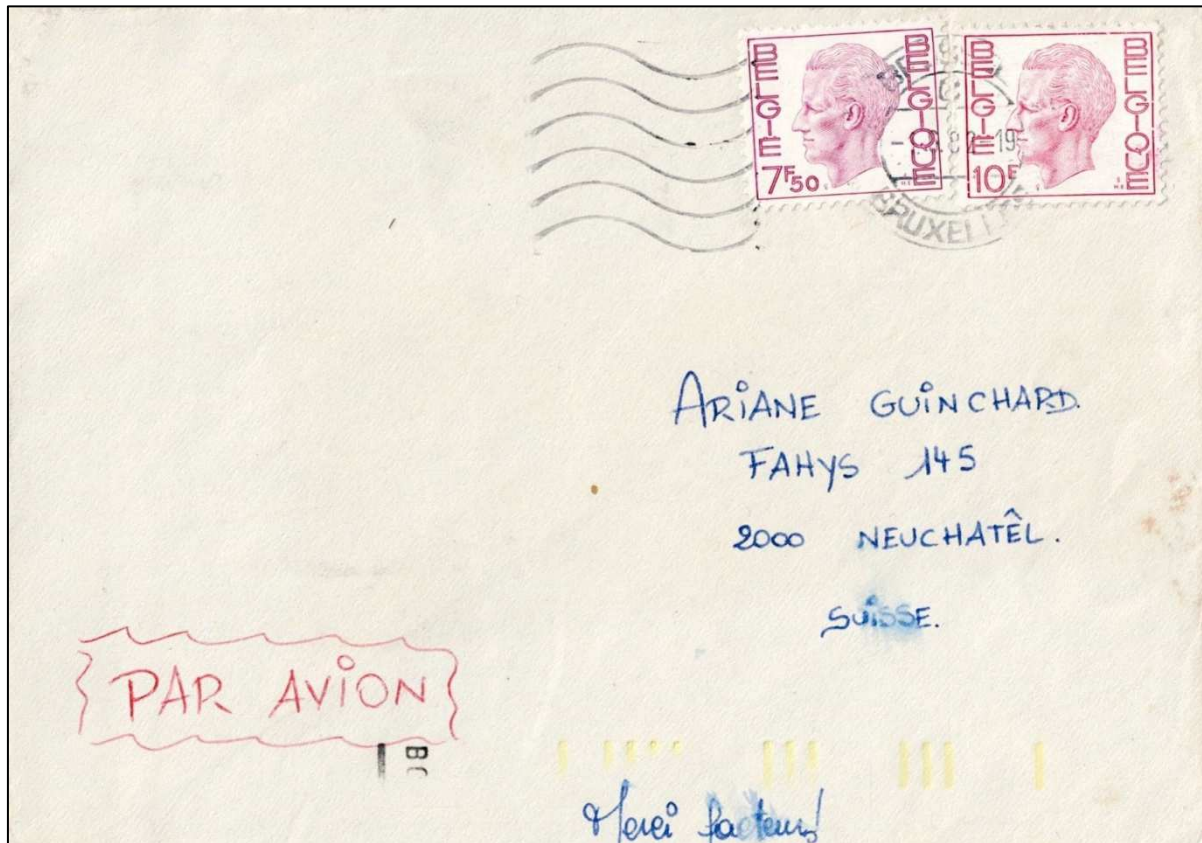 BELGIE BELGIQUE
7F50
BELGIE BELGIQUE
10F
19
ARIANE GUINCHARD.
FAHYS 145
2000 NEUCHATÊL.
SUISSE.
PAR AVION
Merci facteur!